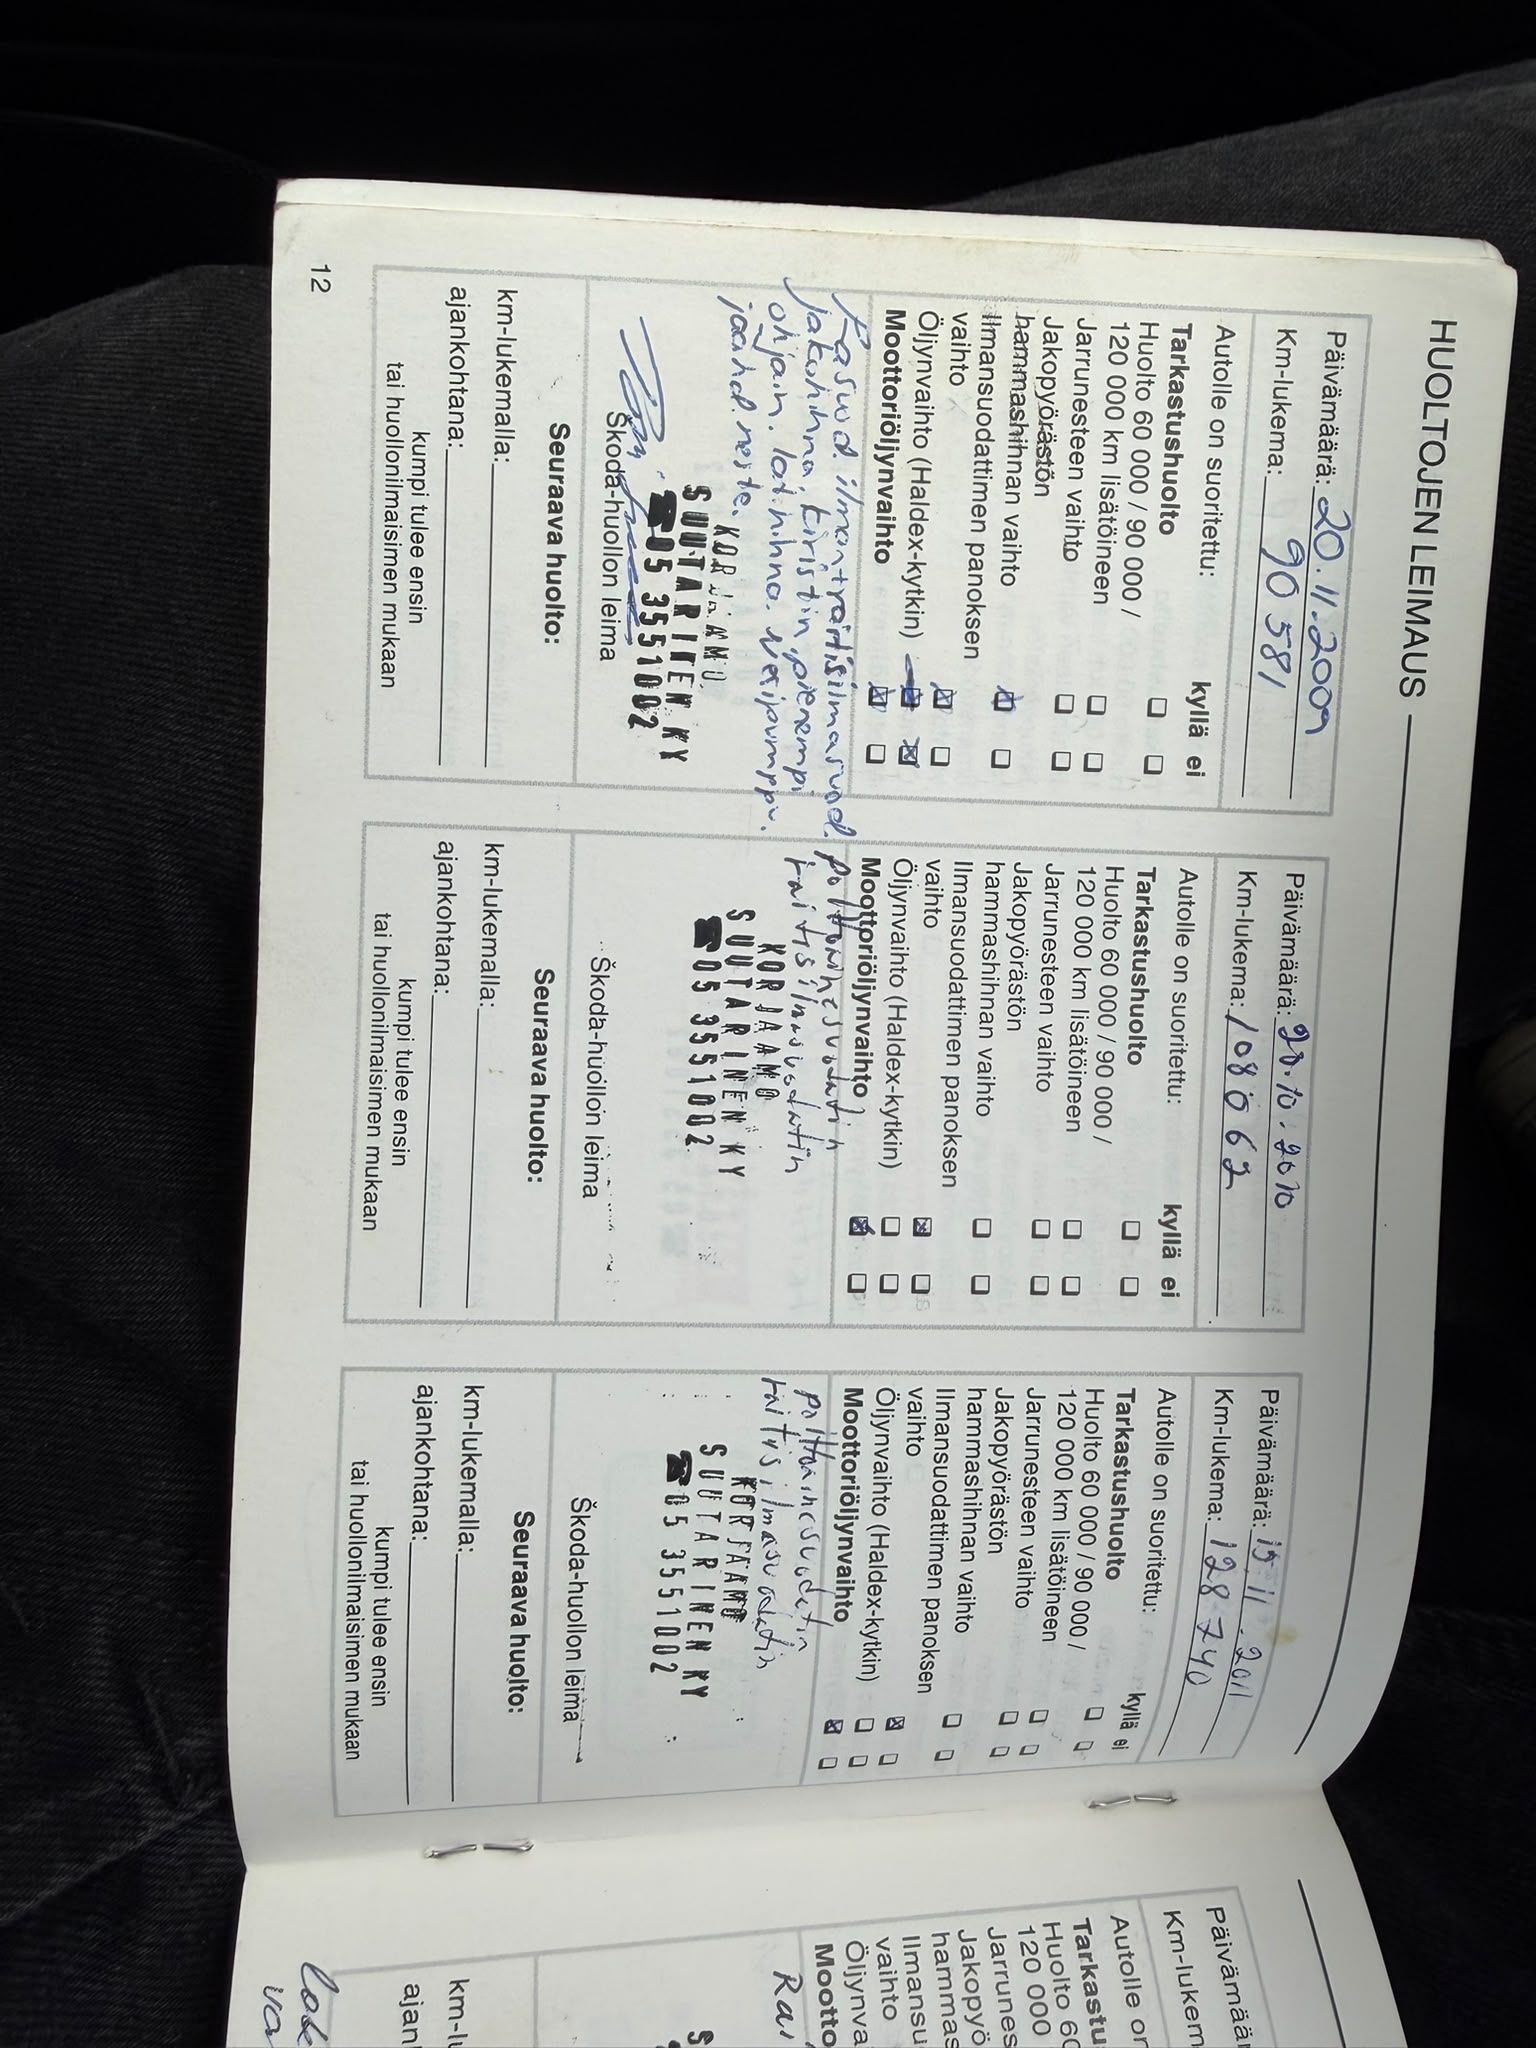 HUOLTOJEN LEIMAUS
Päivämäärä: 20.11.2009
Km-lukema: 90 581
Autolle on suoritettu:
kyllä ei
Tarkastushuolto
Huolto 60 000 / 90 000 /
120 000 km lisätöineen
Jarrunesteen vaihto
Jakopyörästön
hammashihnan vaihto
Ilmansuodattimen panoksen
vaihto
Öljynvaihto (Haldex-kytkin)
Moottoriöljynvaihto
ilmasuod.
jakohihna, kiristin, pienempi
ohjain. lat.hihna. vesipumppu.
jäähd.neste.
KORJAAMO
SUUTARINEN KY
☎05 3551002
Škoda-huollon leima
Seuraava huolto:
km-lukemalla:
ajankohtana:
kumpi tulee ensin
tai huollonilmaisimen mukaan
12
Päivämäärä: 28.10.2010
Km-lukema: 108 062
Autolle on suoritettu:
kyllä ei
Tarkastushuolto
Huolto 60 000 / 90 000 /
120 000 km lisätöineen
Jarrunesteen vaihto
Jakopyörästön
hammashihnan vaihto
Ilmansuodattimen panoksen
vaihto
Öljynvaihto (Haldex-kytkin)
Moottoriöljynvaihto
polttoainesuodatin
raitisilmasuodatin
KORJAAMO
SUUTARINEN KY
☎05 3551002
Škoda-huollon leima
Seuraava huolto:
km-lukemalla:
ajankohtana:
kumpi tulee ensin
tai huollonilmaisimen mukaan
Päivämäärä: 15.11.2011
Km-lukema: 128 740
Autolle on suoritettu:
kyllä ei
Tarkastushuolto
Huolto 60 000 / 90 000 /
120 000 km lisätöineen
Jarrunesteen vaihto
Jakopyörästön
hammashihnan vaihto
Ilmansuodattimen panoksen
vaihto
Öljynvaihto (Haldex-kytkin)
Moottoriöljynvaihto
polttoainesuodatin
raitisilmasuodatin
KORJAAMO
SUUTARINEN KY
☎05 3551002
Škoda-huollon leima
Seuraava huolto:
km-lukemalla:
ajankohtana:
kumpi tulee ensin
tai huollonilmaisimen mukaan
Päivämäär
Km-lukem
Autolle on
Tarkastu
Huolto 60
120 000
Jarrunes
Jakopyö
hammas
Ilmansu
vaihto
Öljynva
Mootto
Rai
S
km-lu
ajan